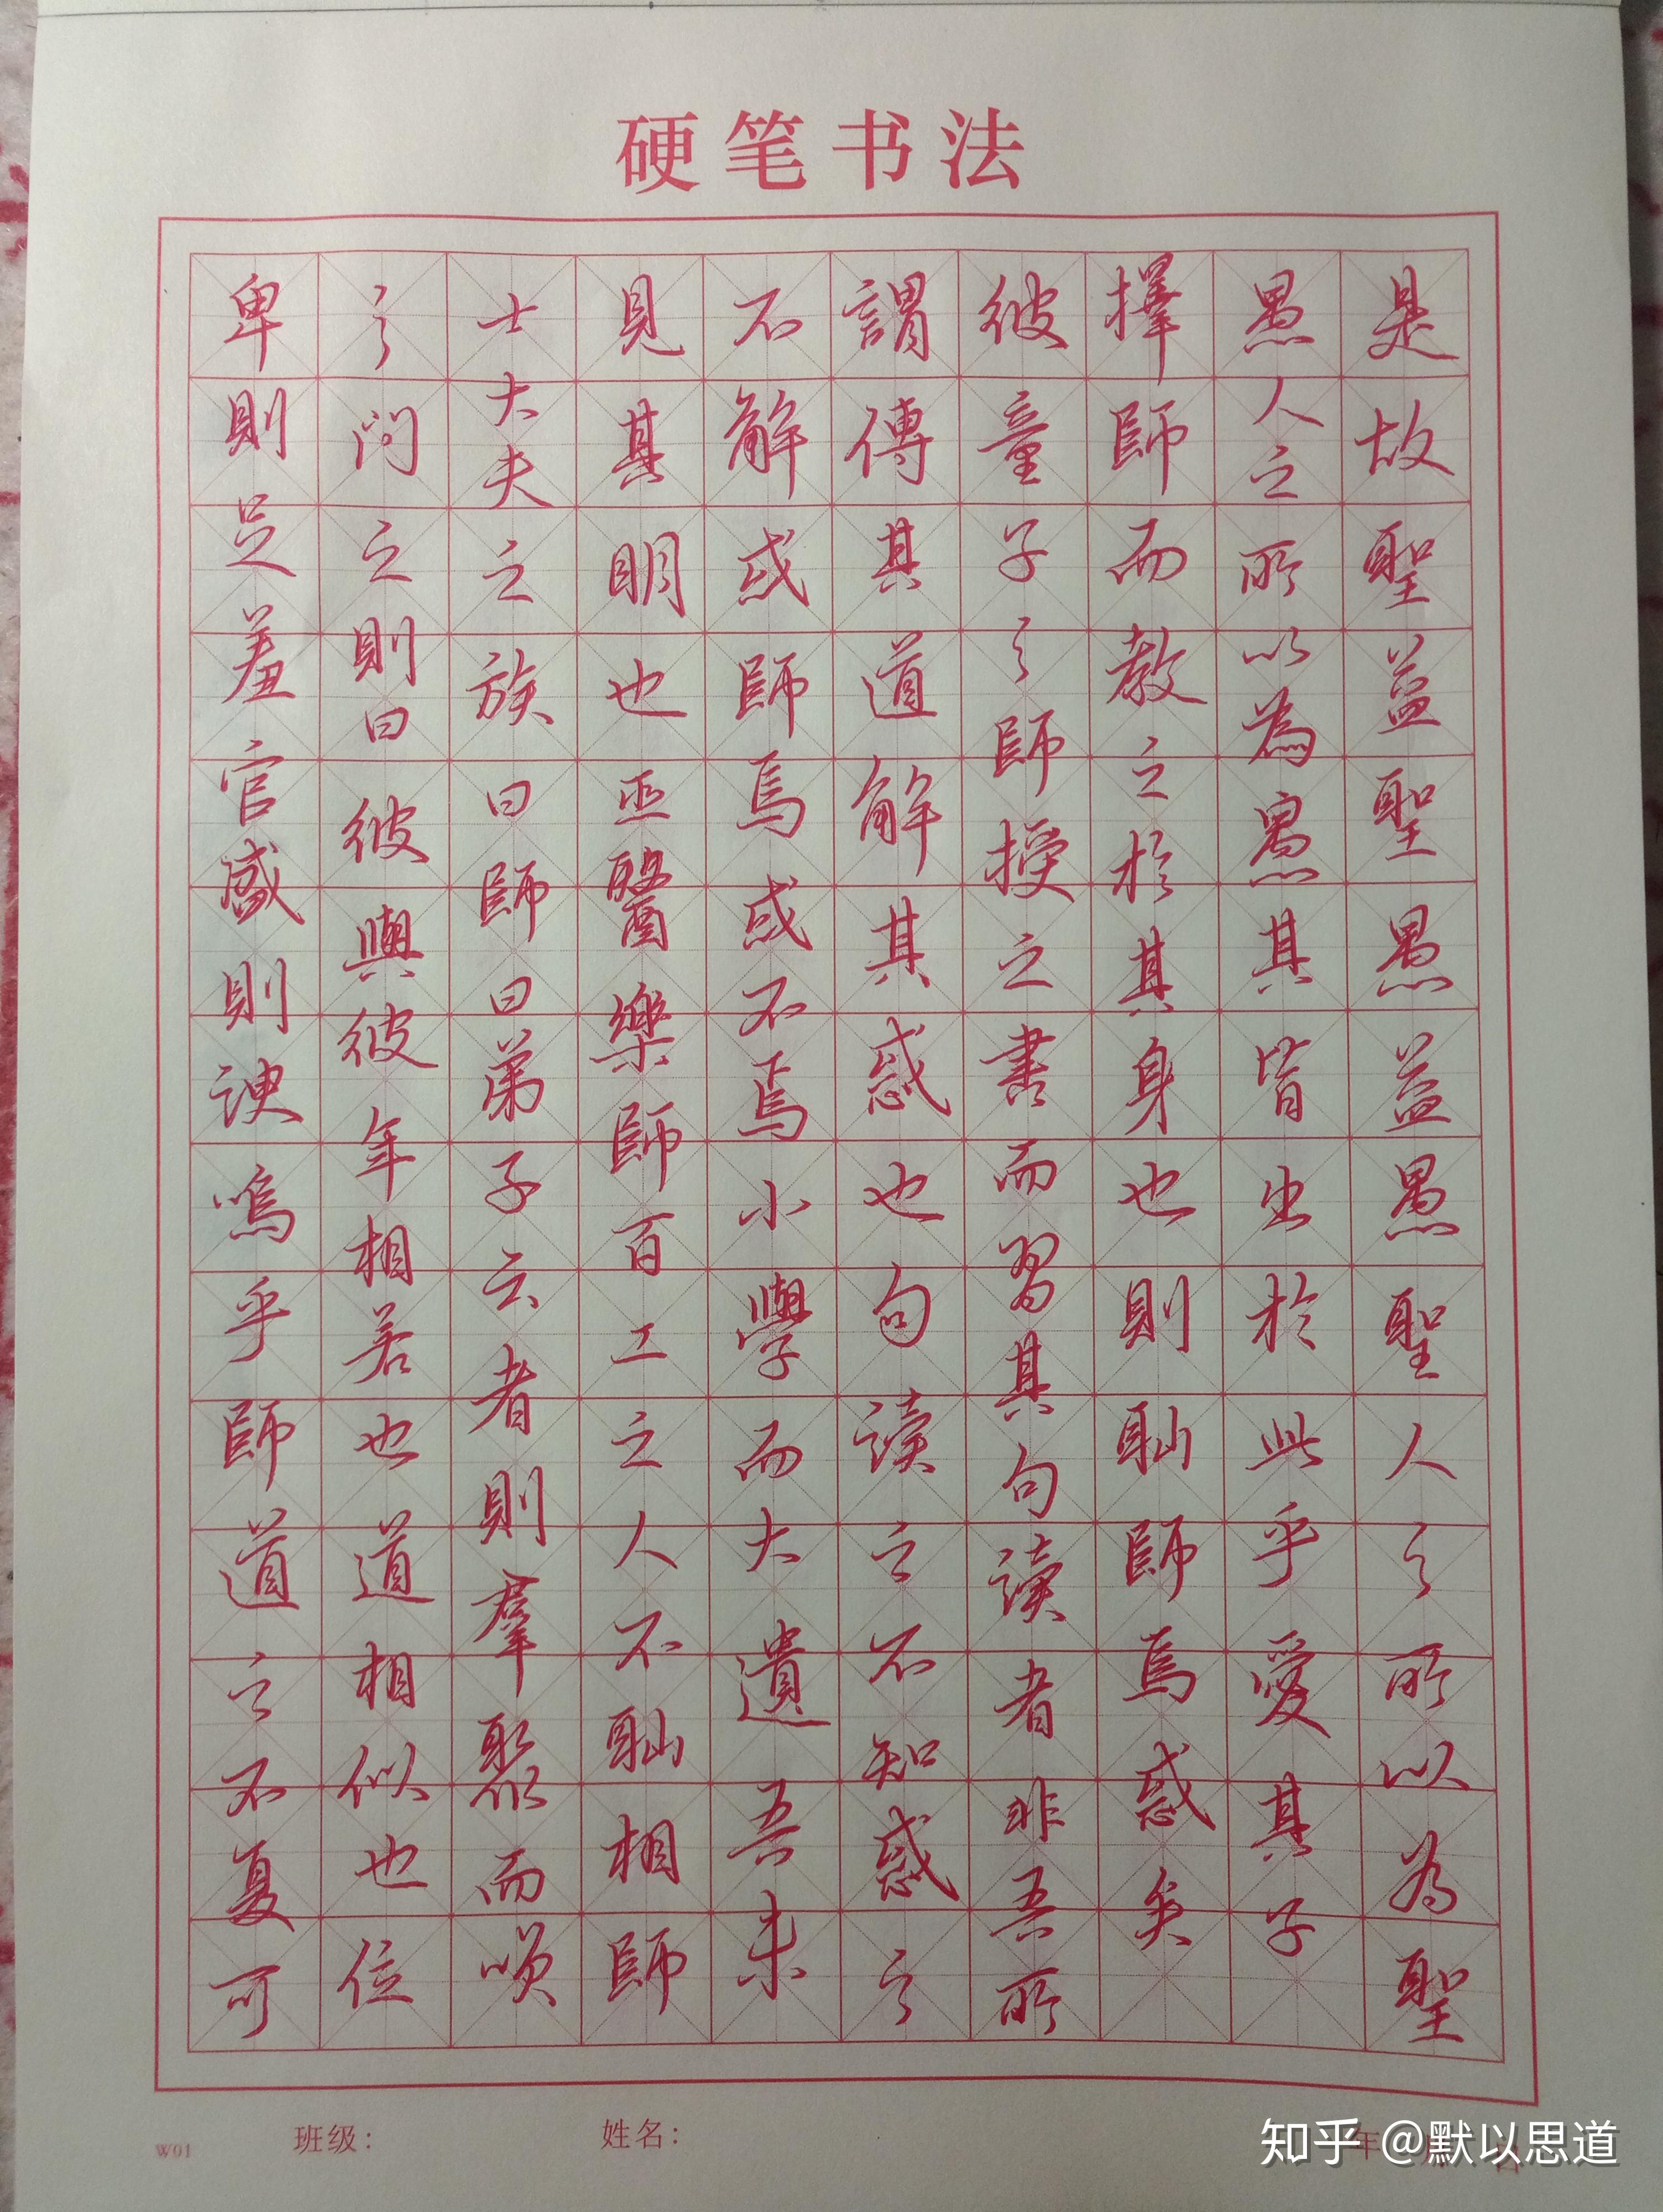 硬笔书法
是故聖益聖愚益愚聖人之所以為聖
愚人之所以為愚其皆出於此乎愛其子
擇師而教之於其身也則耻師焉惑矣
彼童子之師授之書而習其句讀者非吾所
謂傳其道解其惑也句讀之不知惑之
不解或師焉或不焉小學而大遺吾未
見其明也巫醫樂師百工之人不耻相師
士大夫之族曰師曰弟子云者則羣聚而咲
之問之則曰彼與彼年相若也道相似也位
卑則足羞官盛則諛嗚乎師道之不复可
W01 班级： 姓名： 年
知乎 @默以思道